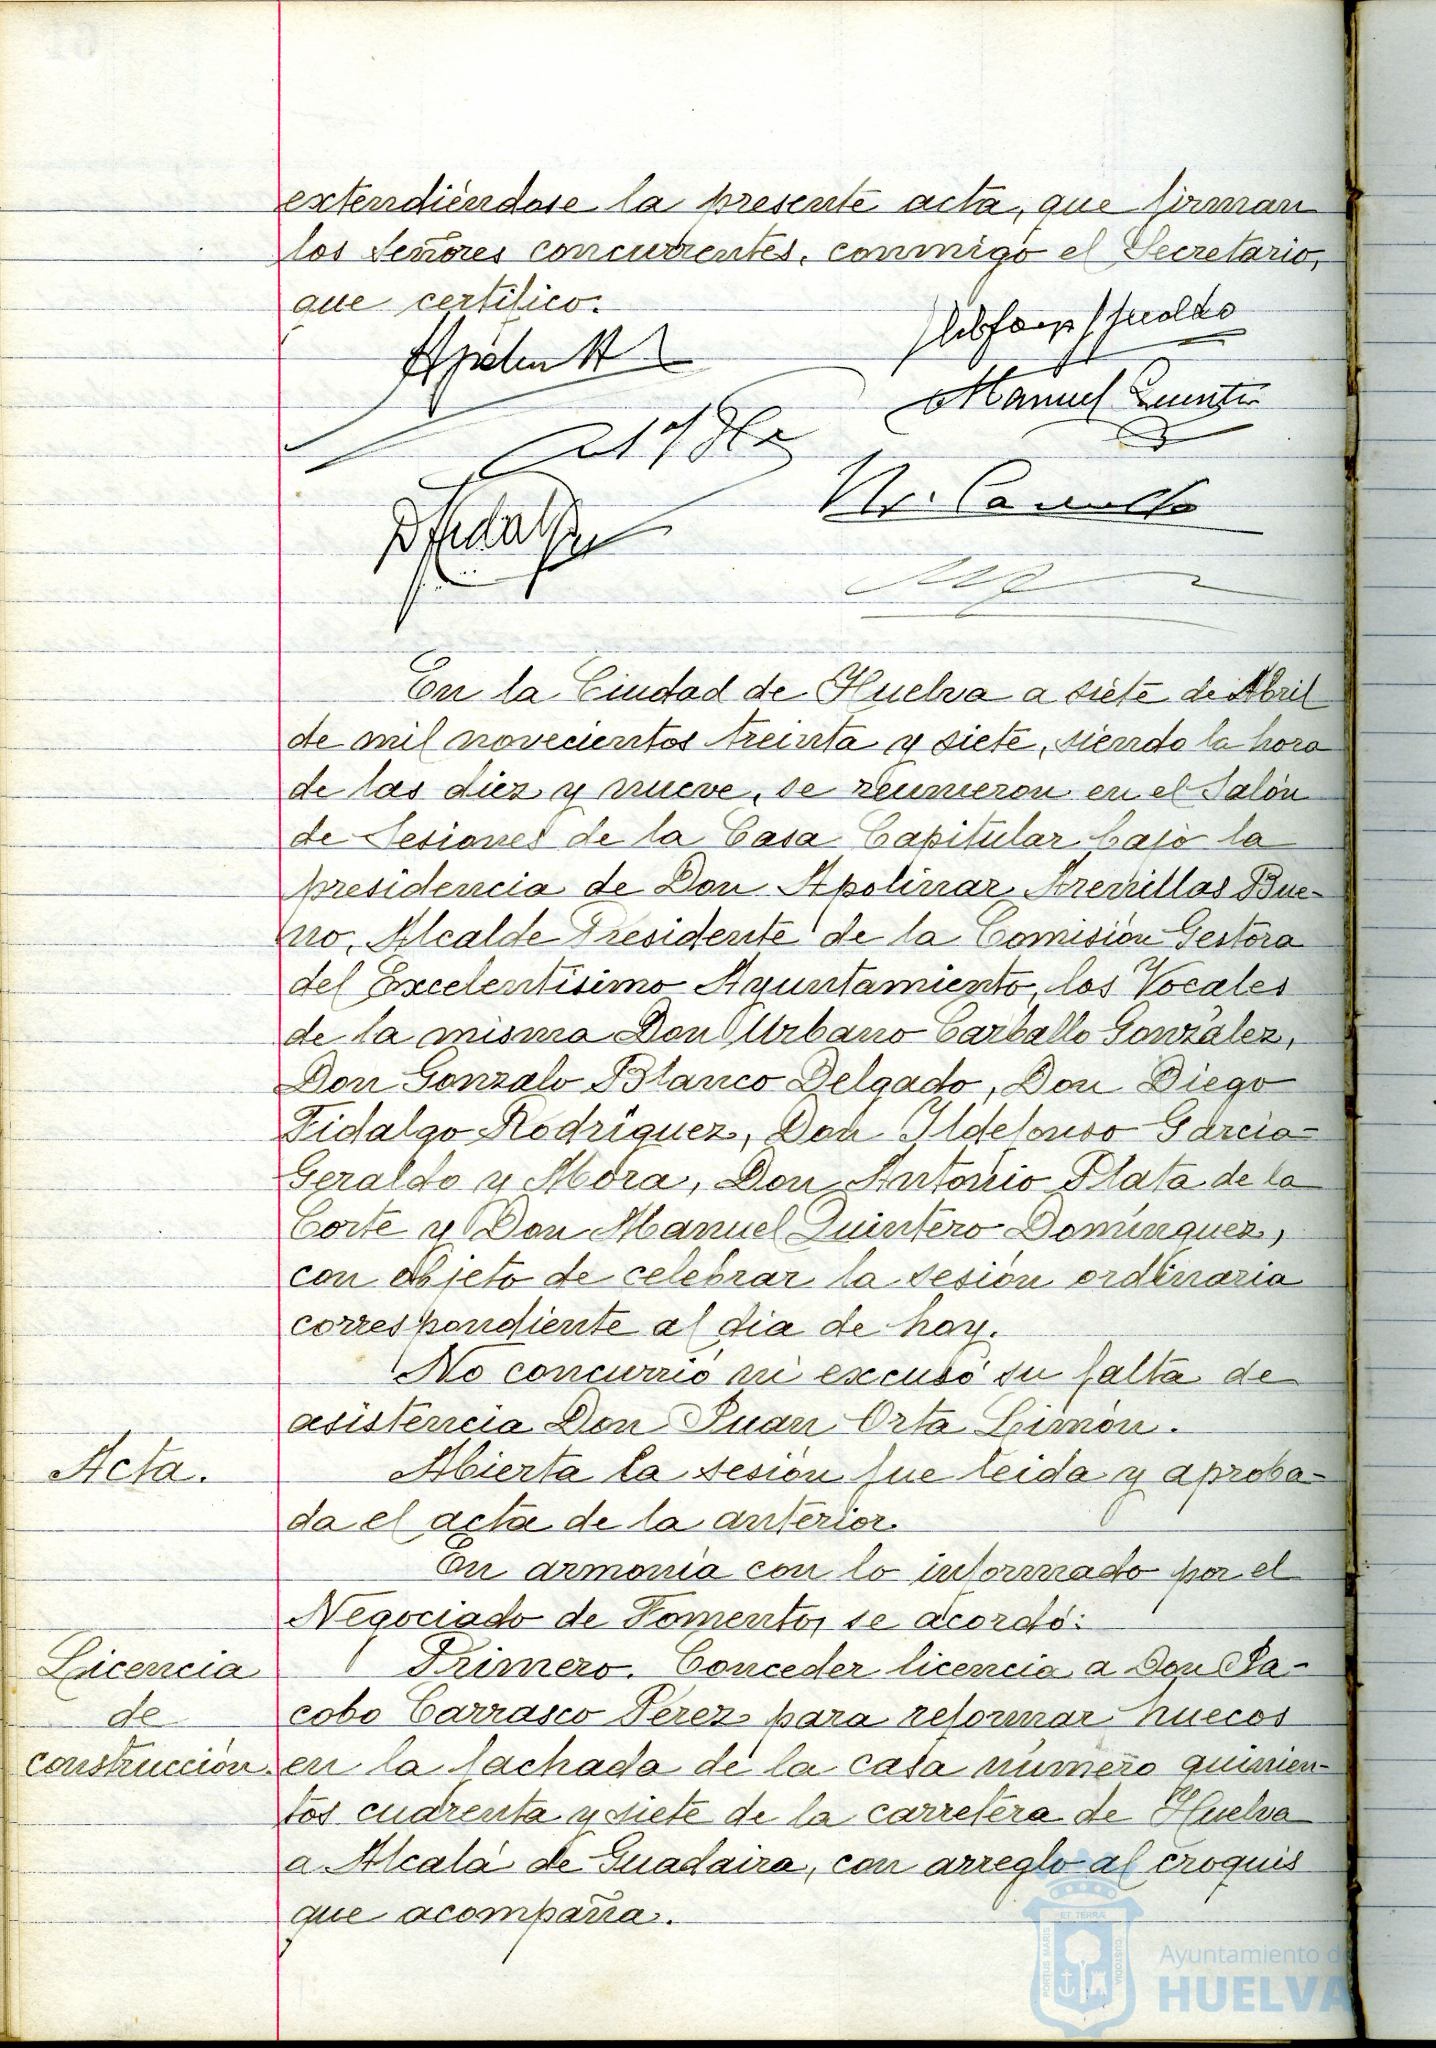 extendiéndose la presente acta, que firman
los Señores concurrentes, conmigo el Secretario,
que certifico.
Manuel Quintero
D Fidalgo
En la Ciudad de Huelva a siete de Abril
de mil novecientos treinta y siete, siendo la hora
de las diez y nueve, se reunieron en el Salón
de Sesiones de la Casa Capitular bajo la
presidencia de Don Apolinar Arenillas Bue-
no, Alcalde Presidente de la Comisión Gestora
del Excelentísimo Ayuntamiento, los Vocales
de la misma Don Urbano Carballo González,
Don Gonzalo Blanco Delgado, Don Diego
Fidalgo Rodríguez, Don Ildefonso García-
Geraldo y Mora, Don Antonio Plata de la
Corte y Don Manuel Quintero Domínguez,
con objeto de celebrar la sesión ordinaria
correspondiente al dia de hoy.
No concurrió ni excusó su falta de
asistencia Don Juan Orta Limón.
Acta.
Abierta la sesión fue leida y aproba-
da el acta de la anterior.
En armonía con lo informado por el
Negociado de Fomento, se acordó:
Licencia
de
construcción.
Primero. Conceder licencia a Don Ja-
cobo Carrasco Pérez para reformar huecos
en la fachada de la casa número quinien-
tos cuarenta y siete de la carretera de Huelva
a Alcalá de Guadaira, con arreglo al croquis
que acompaña.
PORTUS MARIS
ET TERRÆ
CUSTODIA
Ayuntamiento de
HUELVA